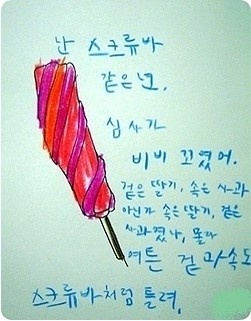 난 스크류바
같은 년.
심사가
비비 꼬였어.
겉은 딸기, 속은 사과
아닌가 속은 딸기, 겉은
사과였나, 몰라
여튼 겉과 속도
스크류바처럼 틀려.